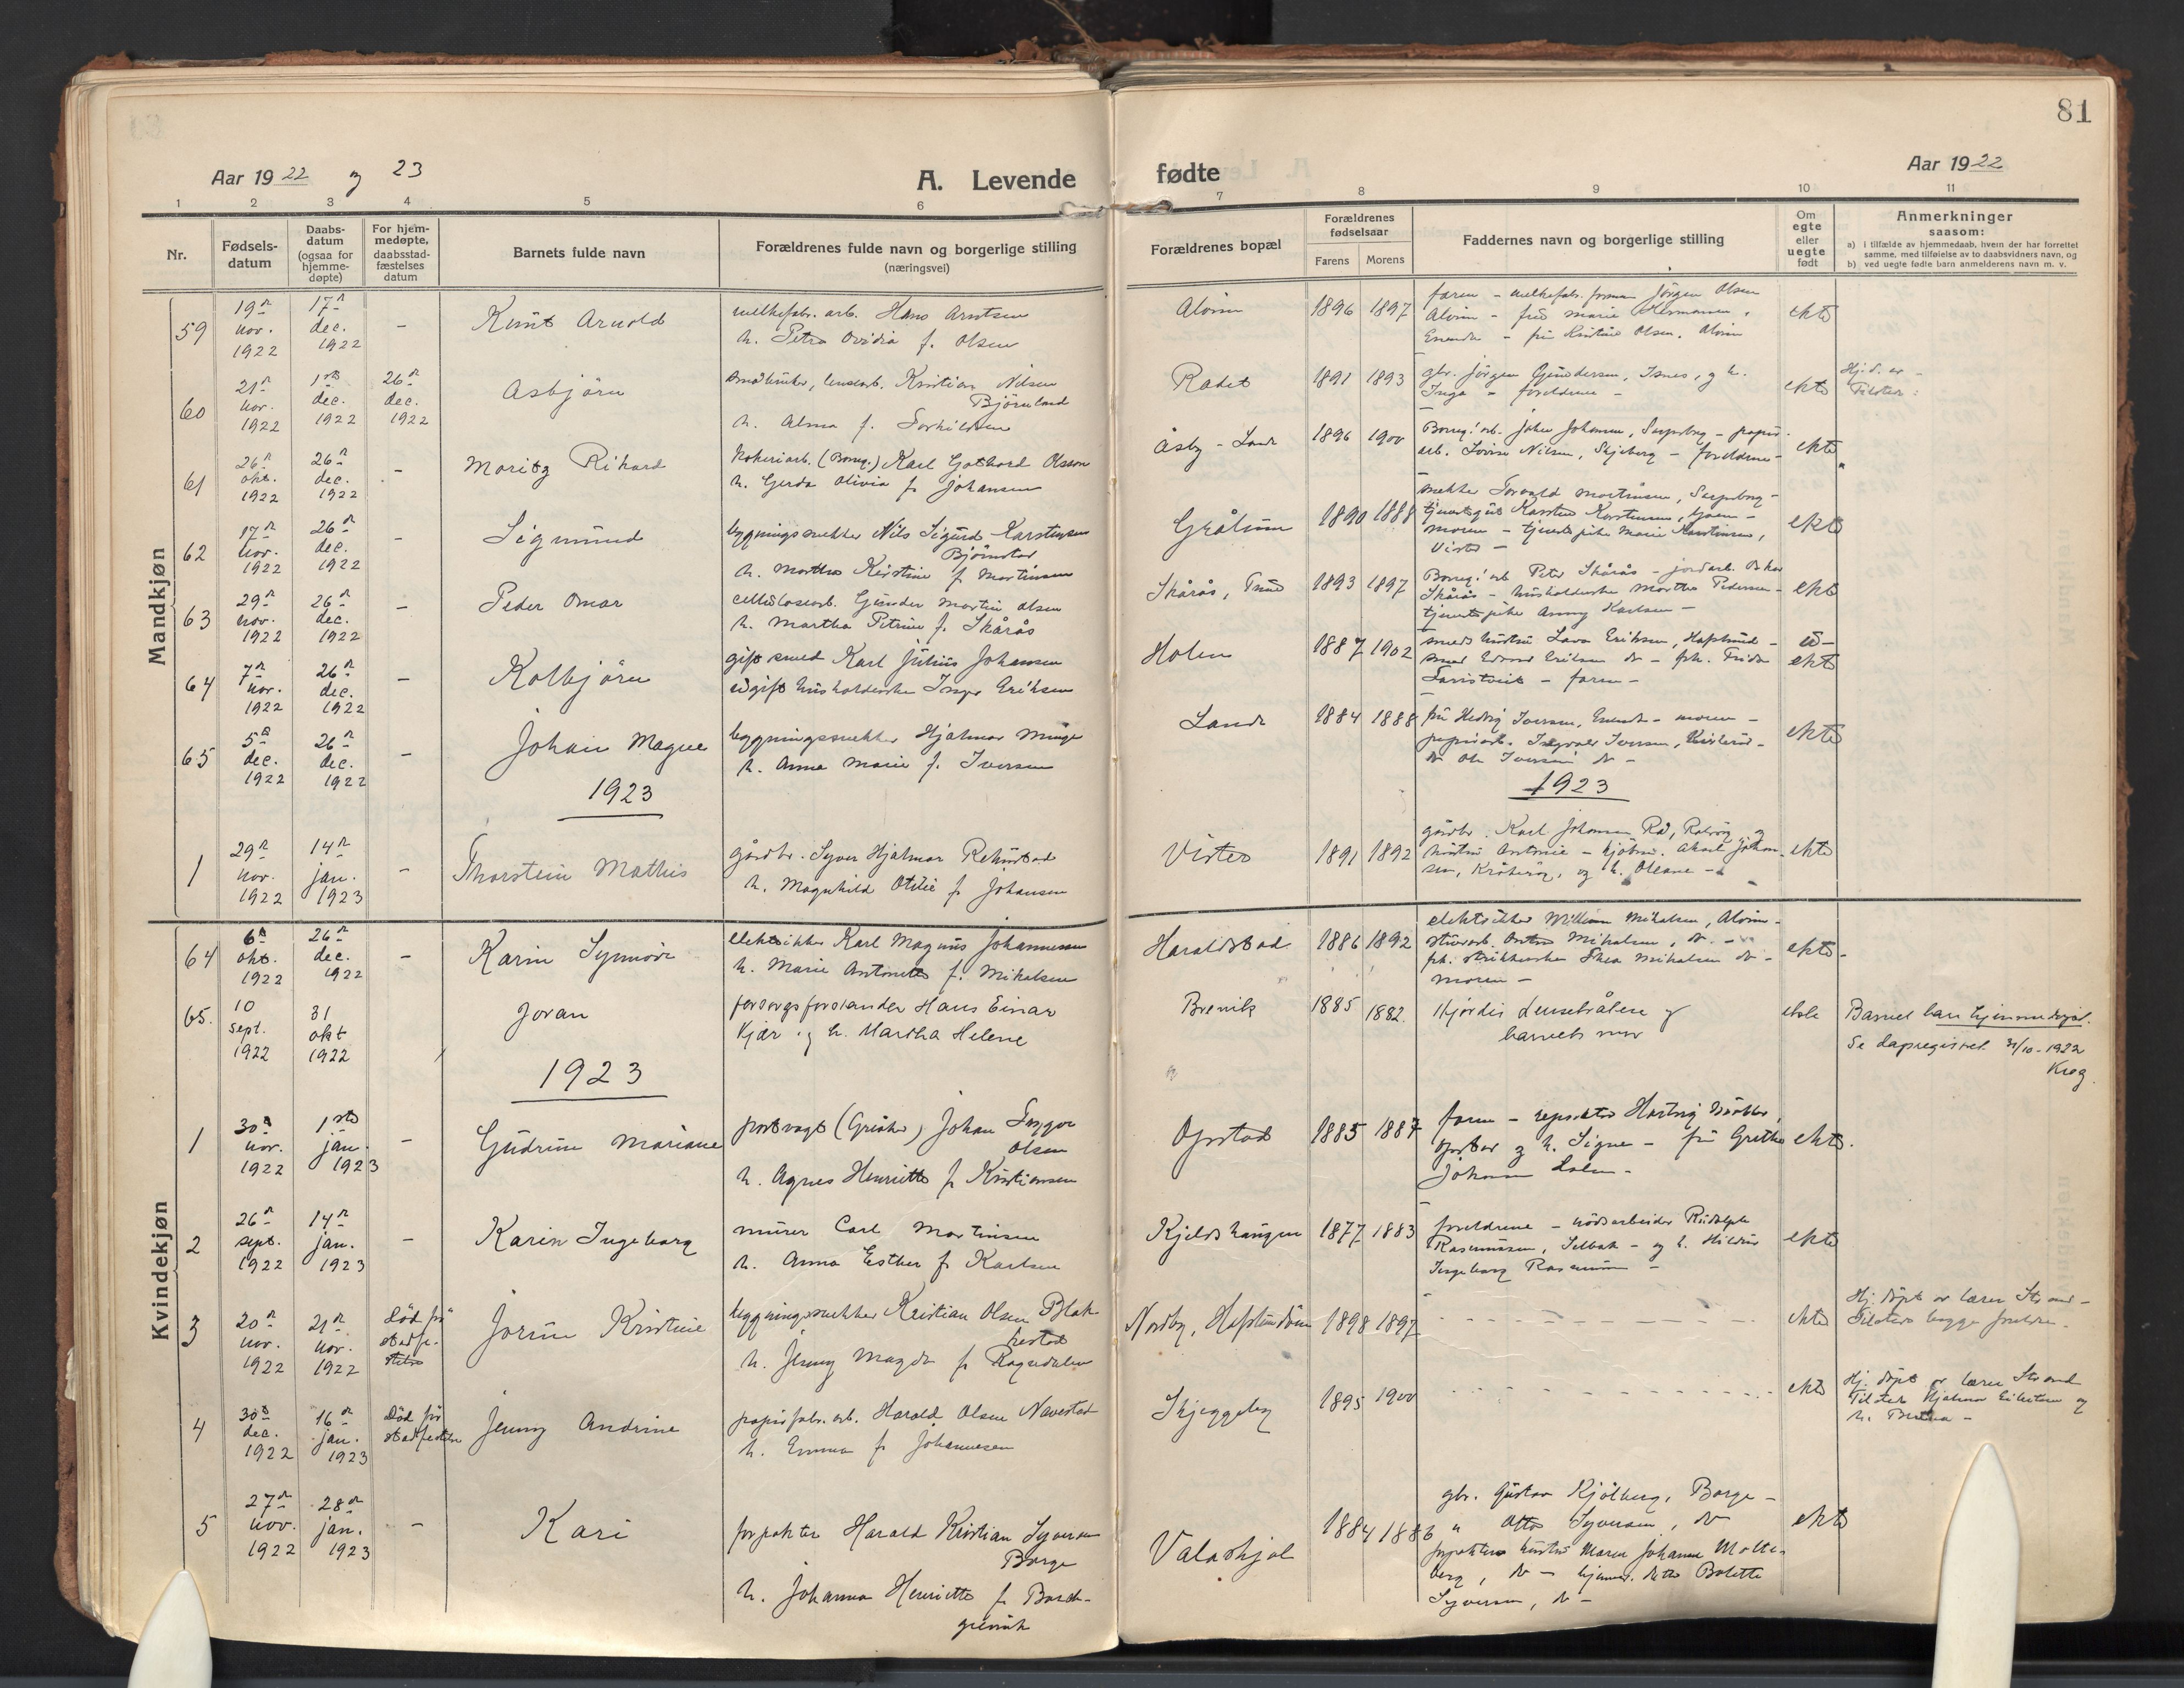 81
Aar 1922 og 23
A. Levende
fødte
Aar 1922
1 2 3 4 5 6
7 8 9 10 11
Nr.
Fødsels-
datum
Daabs-
datum
(ogsaa for
hjemme-
døpte)
For hjem-
medøpte,
daabsstad-
fæstelses
datum
Barnets fulde navn
Forældrenes fulde navn og borgerlige stilling
(næringsvei)
Forældrenes bopæl
Forældrenes
fødselsaar
Farens Morens
Faddernes navn og borgerlige stilling
Om
egte
eller
uegte
født
Anmerkninger
saasom:
a) i tilfælde av hjemmedaab, hvem der har forrettet
samme, med tilføielse av to daabsvidners navn, og
b) ved uegte fødte barn anmelderens navn m. v.
Mandkjøn
59
19de
nov.
1922
17de
dec.
1922
-
Knut Arnold
arb. Hans Arntsen
h. Petra Ovidia f. Olsen
Alvim
1896 1897
faren - Jörgen Olsen
Alvim - frö Marie Hermansen,
- frü Kristine Olsen, Alvim
ekte
60
21de
nov.
1922
1ste
dec.
1922
26de
dec.
1922
Asbjörn
Kristian Nilsen
Björnland
h. Alma f. Torkildsen
Radet
1891 1893
gbr. Jörgen Gundersen, Isnes, og h.
Inga - foreldrene -
ekte
Hj. d. av -
61
26de
okt.
1922
26de
dec.
1922
-
Moritz Rikard
kokeriarb. (Borreg.) Karl Gothard Olsson
h. Gerda Olivia f. Johansen
Åsby - Lande
1896 1900
Borreg. arb. Johan Johansen, Sarpsborg - papir-
arb. Lovise Nilsen, Skjeberg - foreldrene -
ekte
62
17de
nov.
1922
26de
dec.
1922
-
Sigmund
bygningssnekker Nils Sigurd Karstensen
Björnstad
h. Martha Kristine f. Martinsen
Grålum
1890 1888
snekker Torvald Martinsen, Sarpsborg -
moren - tjenestepike Marie Karstensen,
Visto -
ekte
63
29de
nov.
1922
26de
dec.
1922
-
Peder Omar
cellulosearb. Gunder Martin Olsen
h. Martha Petrine f. Skårås
Skårås, Tune
1893 1897
Borreg. arb Peter Skårås - jordarb. Oskar
Skårås - husholderske Martha Pedersen -
tjenestepike Anny Karlsen -
ekte
64
7de
nov.
1922
26de
dec.
1922
-
Kolbjörn
gift smed Karl Julius Johansen
ugift husholderske Inga Eriksen
Holen
1887 1902
smeds hustru Lava Eriksen, Hafslund -
smed Edvard Eriksen do - frk. Frida
- faren -
u-
ekte
65
5te
dec.
1922
26de
dec.
1922
-
Johan Magne
bygningssnekker Hjalmar Minge
h. Anna Marie f. Iversen
Lande
1884 1888
frü Hedvig Iversen, - moren -
papirarb. Ingvald Iversen,
do Ole Iversen do -
ekte
1923
1923
1
29de
nov.
1922
14de
jan.
1923
-
Thorstein Mathis
gårdbr. Syver Hjalmar Rekustad
h. Magnhild Otilie f. Johansen
Vister
1891 1892
gårdbr. Karl Johansen Rød, Rolvsöy og
hustru Antonie - kjöbm. Aksel Johan-
sen, Kråkeröy, og h. Oleane -
ekte
Kvindekjøn
64
6te
okt.
1922
26de
dec.
1922
-
Karin Synnöve
elektriker Karl Magnus Johannessen
h. Marie Antonette f. Mikalsen
Haraldstad
1886 1892
elektriker William Mikalsen, Alvim -
Anton Mikalsen, do. -
frk. Thea Mikalsen do -
moren -
ekte
65.
10
sept.
1922
31
okt
1922
Joran
forsorgsforstander Hans Einar
Kjær og h. Martha Helene
Brevik
1885 1882.
Hjördis og
barnets mor
ekte
Barnet
Se dåpregistret 31/10-1922
Krog.
1923
1
30te
nov.
1922
1ste
jan.
1923
-
Gudrun Mariane
portvagt (Greåker) Johan Trygve
Olsen
h. Agnes Henriette f. Kristiansen
Opstad
1885 1887
faren - Hartvig
Opstad og h. Signe - frü Grethe
Johanne
ekte.
2
26de
sept.
1922
14de
jan.
1923
-
Karin Ingeborg
murer Carl Martinsen
h. Anna Esther f. Karlsen
Kjelshaugen
1877 1883
foreldrene - Rudolph
Rasmussen, Selbak - og h. Hildur
Ingeborg Rasmussen -
ekte
3
20de
nov.
1922
21de
nov.
1922
Död för
stadfe-
stelse
Jorun Kristine
bygningssnekker Kristian Olsen Blak-
kestad
h. Jenny Magda f. Ragndalen
Nordby, Hafslundsöen
1898 1897
ekte
Hj. döpt av lærer Strand -
Tilstede begge foreldre.
4
30te
dec.
1922
16de
jan.
1923
Död för
stadfestelse
Jenny Andrine
papirfabr. arb. Harald Olsen Navestad
h. Emma f. Johannesen
Skjeggeby
1895 1900
ekte
Hj. döpt av lærer Strand
Tilstede Hjalmar Eilertsen og
h. Berthea -
5
27de
nov.
1922
28de
jan.
1923
-
Kari
forpakter Harald Kristian Syversen
Borge
h. Johanna Henriette f. Bord-
grevink
Valaskjol
1884 1886
gbr. Gustav Kjölberg, Borge -
" Otto Syversen, do
forpakters hustru Maren Johanne Molte-
berg, do - hjemmev. datter Bolette
Syversen, do -
ekte